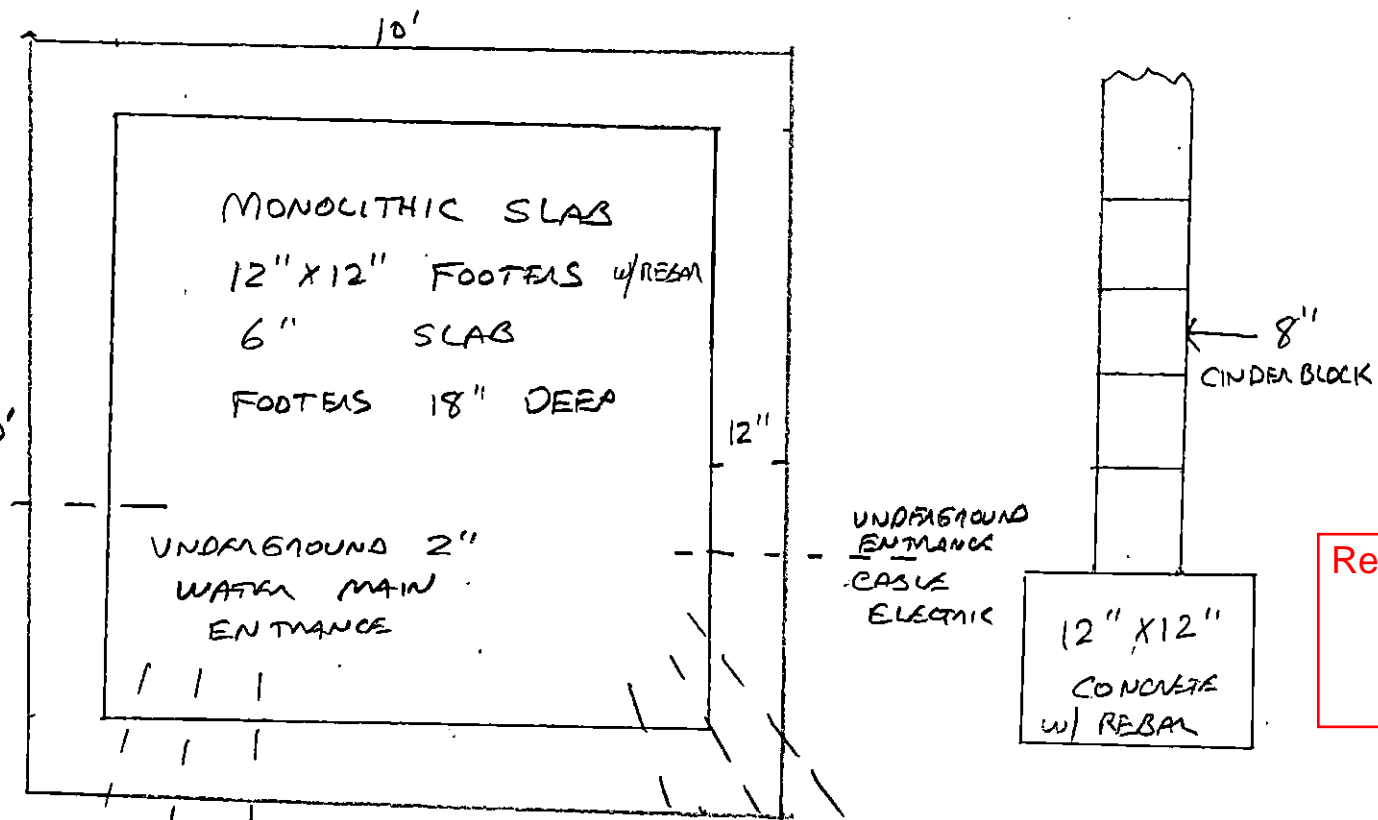 10'
MONOLITHIC SLAB
12" X 12" FOOTERS w/REBAR
6" SLAB
FOOTERS 18" DEEP
12"
UNDERGROUND 2"
WATER MAIN
ENTRANCE
UNDERGROUND
ENTRANCE
CABLE
ELECTRIC
8"
CINDER BLOCK
12" X 12"
CONCRETE
w/ REBAR
Re